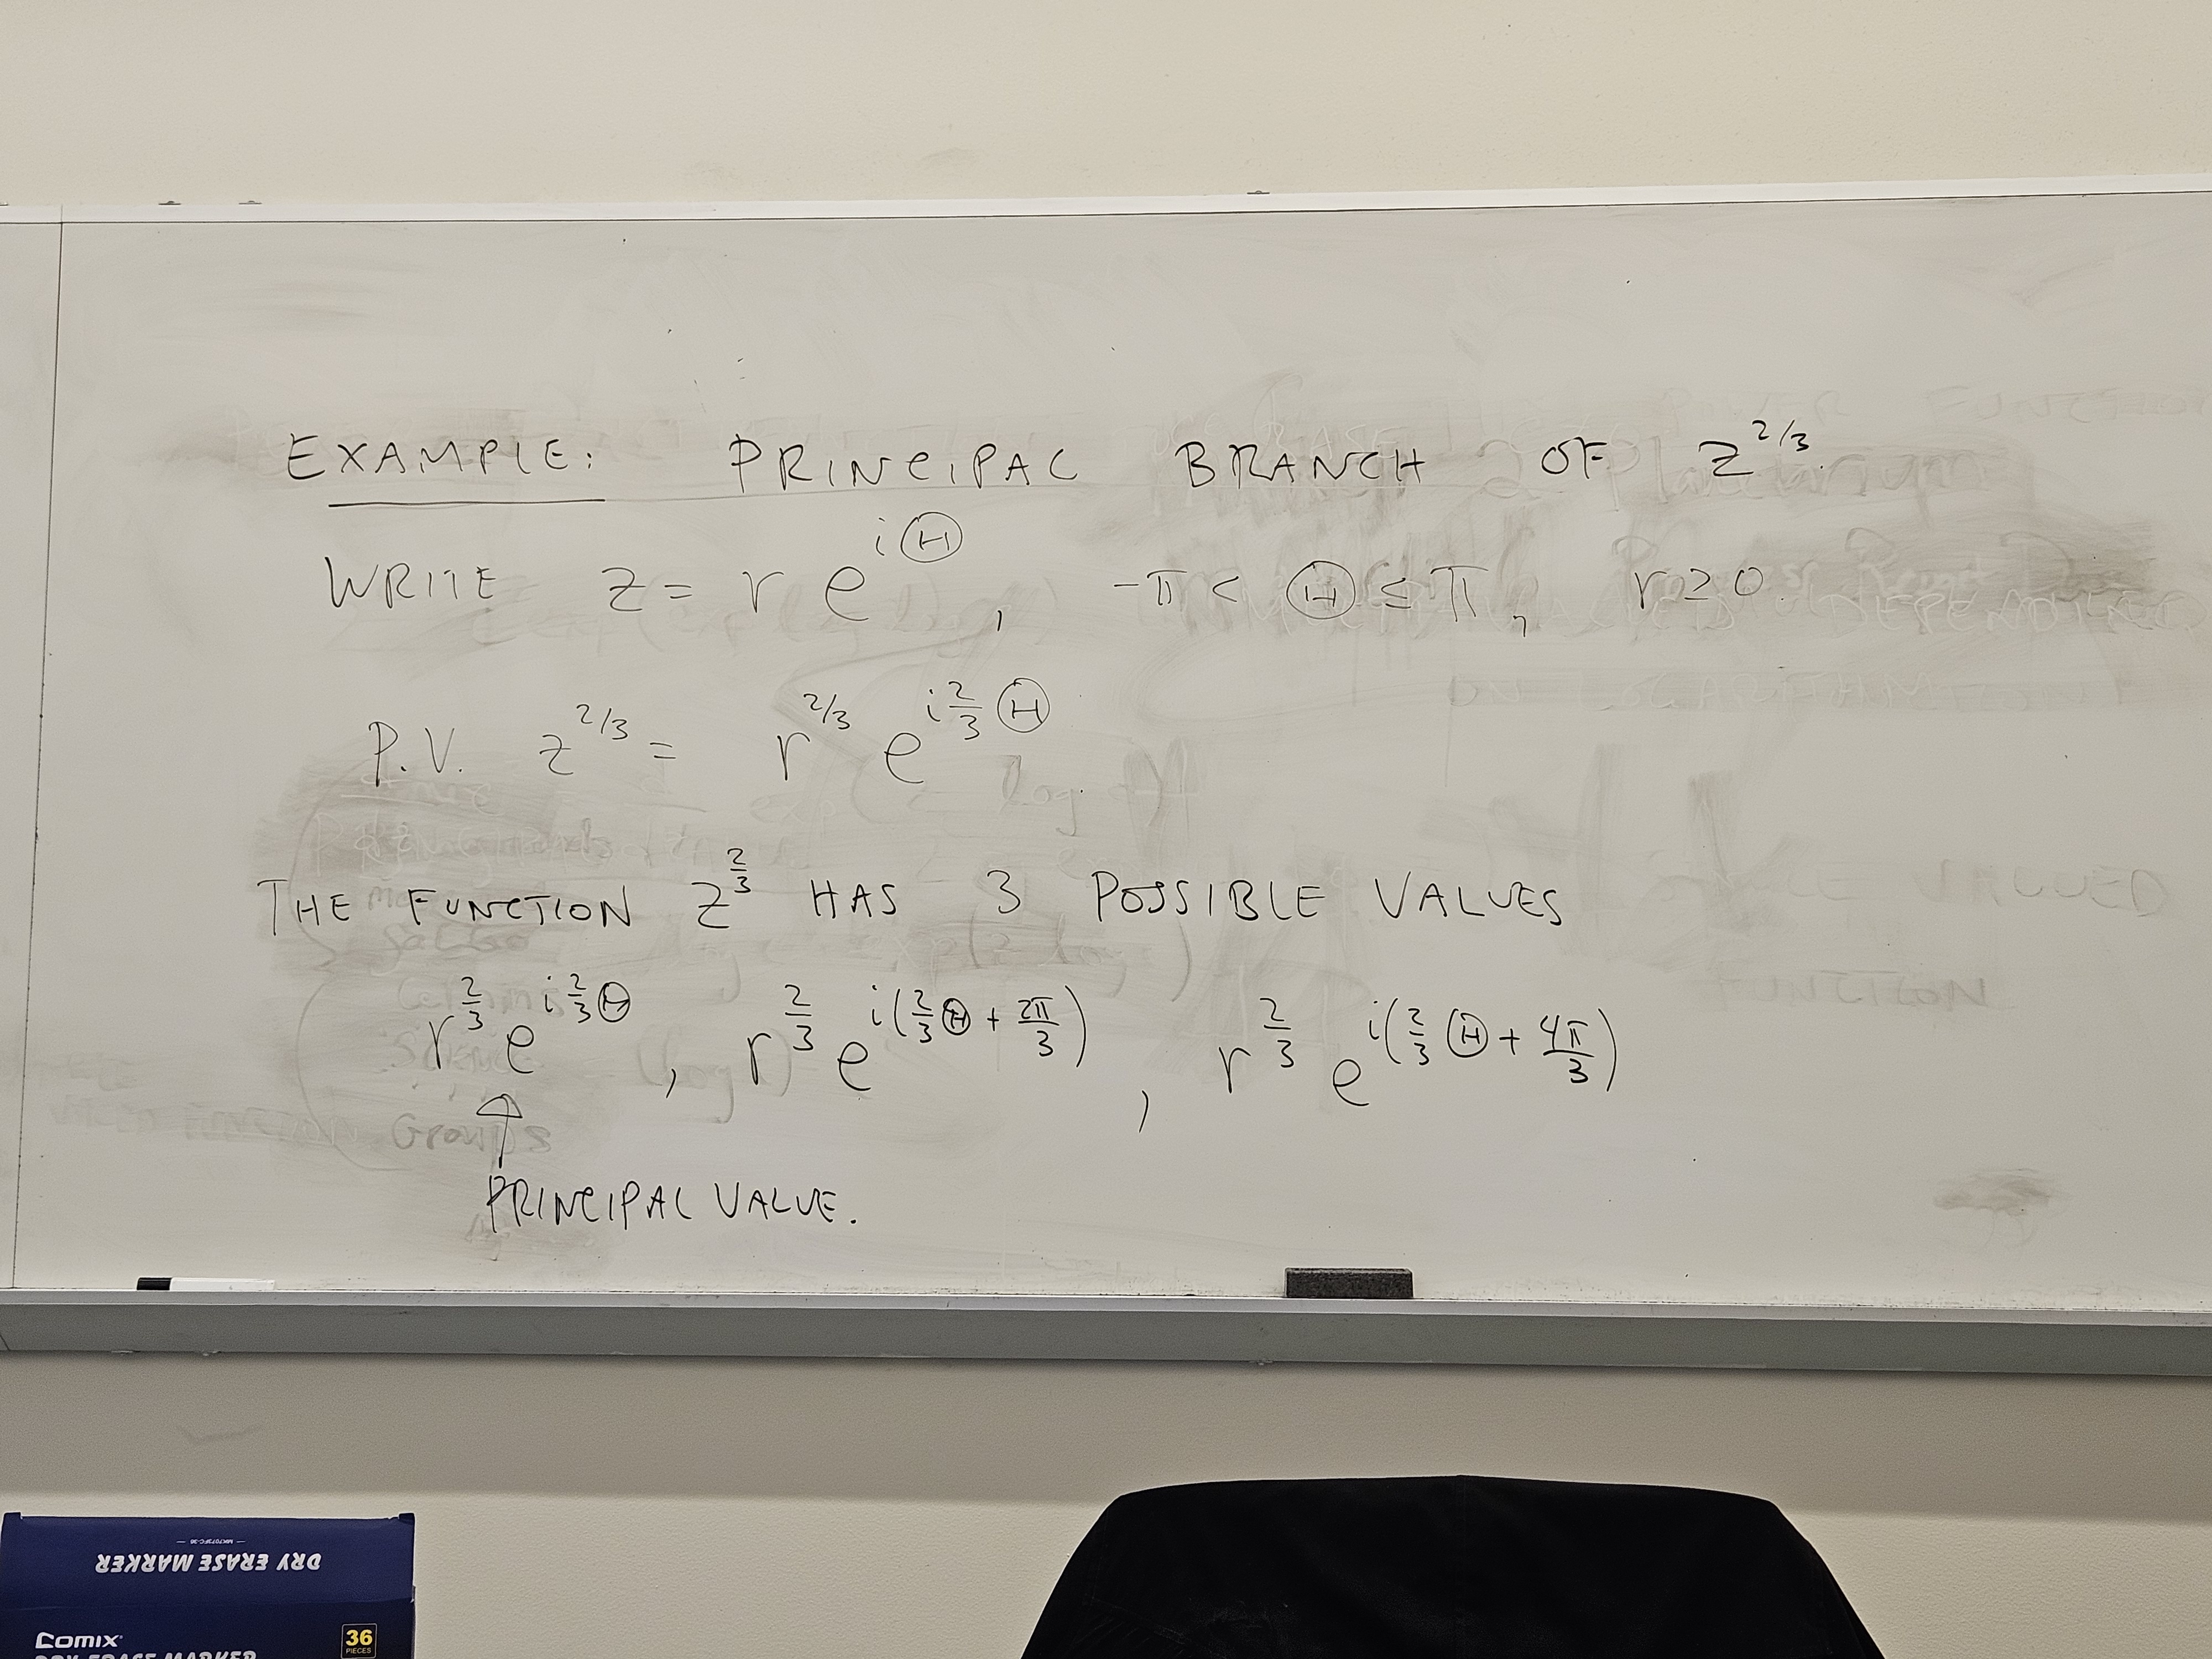 EXAMPLE: PRINCIPAL BRANCH OF z^{2/3}.
WRITE z = r e^{iΘ}, -π < Θ ≤ π, r ≥ 0.
P.V. z^{2/3} = r^{2/3} e^{i 2/3 Θ}
THE FUNCTION z^{2/3} HAS 3 POSSIBLE VALUES
r^{2/3} e^{i 2/3 Θ}, r^{2/3} e^{i(2/3 Θ + 2π/3)}, r^{2/3} e^{i(2/3 Θ + 4π/3)}
↑
PRINCIPAL VALUE.
DRY ERASE MARKER
Comix
36
PIECES
DRY ERASE MARKER